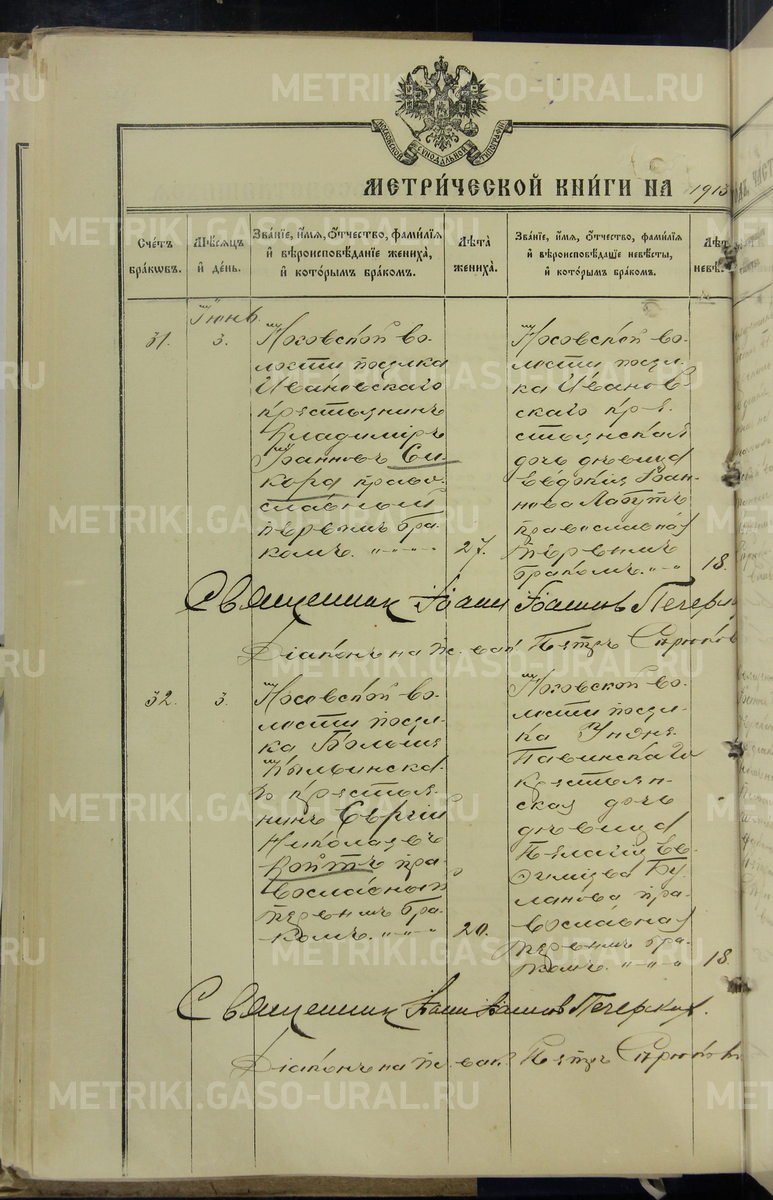 METRIKI.GASO-URAL.RU
МОСКОВСКОЙ СѴНОДАЛЬНОЙ ТИПОГРАФІИ
МЕТРИ́ЧЕСКОЙ КНИ́ГИ НА 1913
Сче́тъ бра́кѡвъ.
Мѣ́сяцъ и҆ де́нь.
Зва́нїе, и҆́мѧ, ѻ҆́тчество, фамилїѧ и҆ вѣроисповѣ́данїе жениха̀, и҆ кото́рымъ бра́комъ.
Лѣта̀ жениха̀.
Зва́нїе, и҆́мѧ, ѻ҆́тчество, фамилїѧ и҆ вѣроисповѣ́данїе невѣ́сты, и҆ кото́рымъ бра́комъ.
Лѣт невѣ
Іюнь.
31.
3.
Носовской во-
лости посел-
Ивановскаго
крестьянинъ
Владиміръ
Іоанновъ Си-
кора право-
славный
первымъ бра-
комъ.
27.
Носовской во-
лости посел-
ка Иванов-
скаго кре-
стьянская
дочь девица
Евдокія Іоан-
нова Лапуть
православная
первымъ
бракомъ.
18.
Священник Іоанн Іоаннов Печерск
Діаконъ на пс. вак. Петръ Стрюков
32.
3.
Носовской во-
лости посел-
ка Больше
крестья-
нинъ Сергій
Николаевъ
Войтъ пра-
вославный
первымъ бра-
комъ.
20.
Носовской во-
лости посел-
ка
крестьян-
ская дочь
девица
Пелагія Ев-
фиміева Бу-
ланова пра-
вославная
первымъ бра-
комъ.
18.
Священник Іоанн Іоаннов Печерск
Діаконъ на пс. вак. Петръ Стрюков